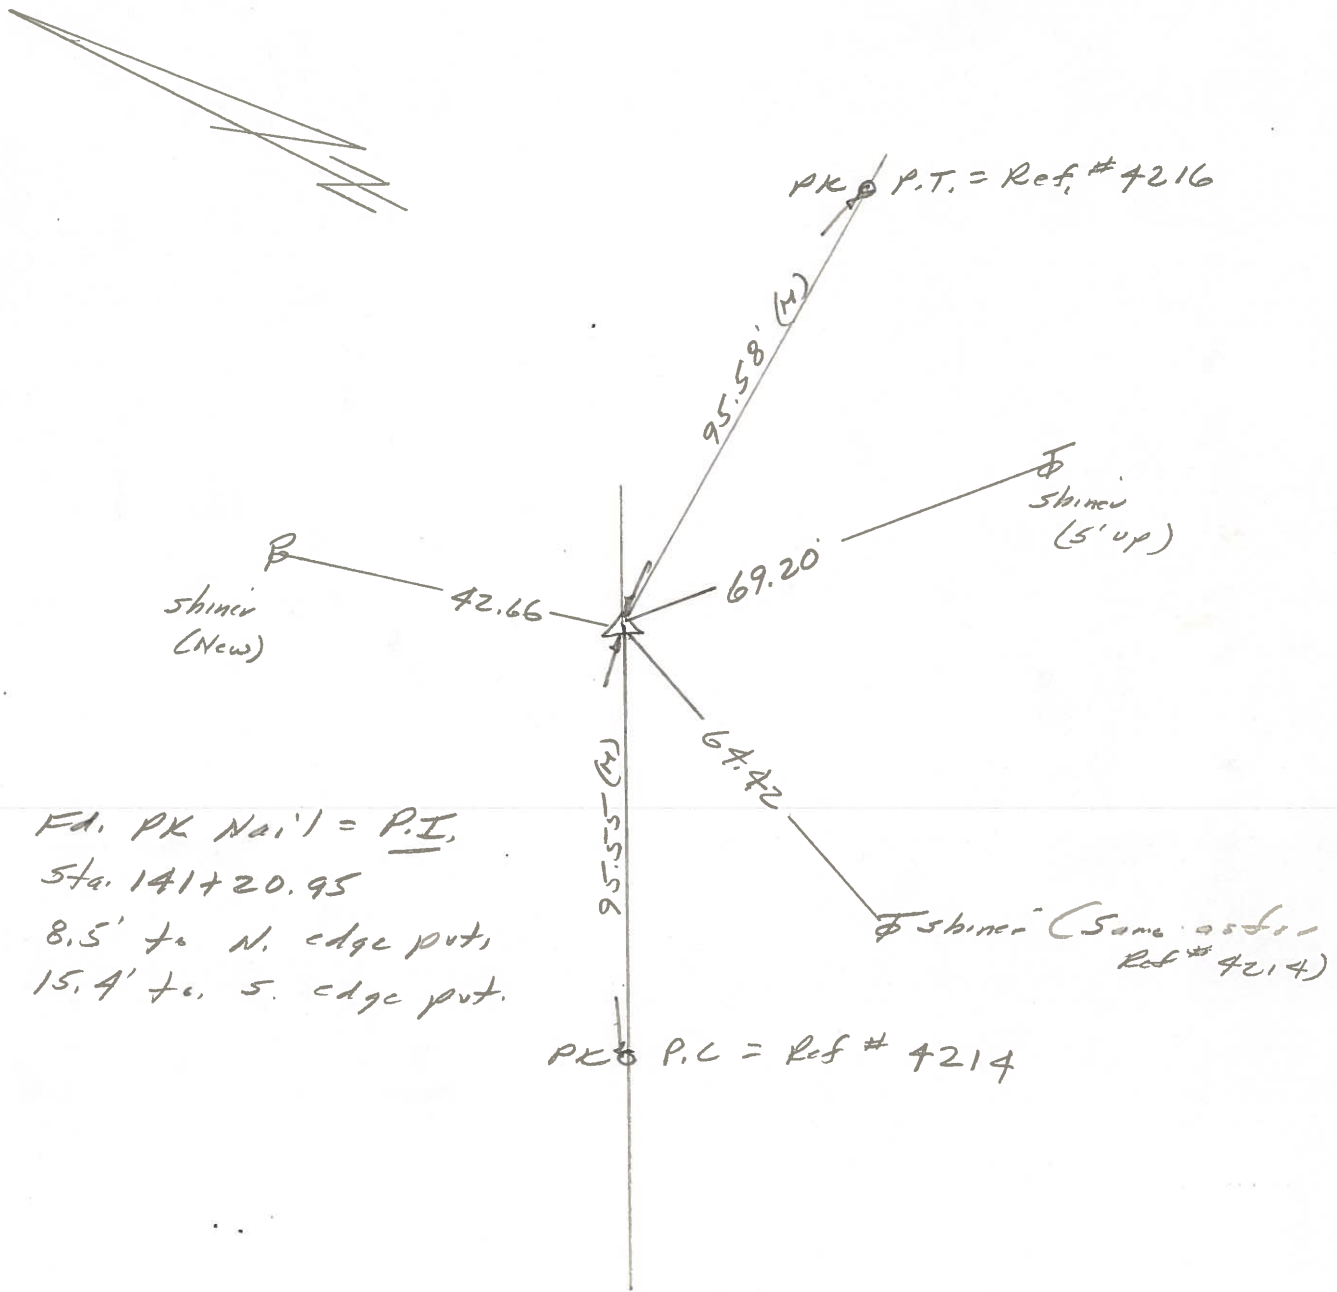 PK P.T. = Ref. # 4216
95.58' (M)
shiner
(5' up)
69.20'
42.66
shiner
(New)
64.42
95.55 (M)
Fd. PK Nail = P.I.
Sta. 141+20.95
8.5' to N. edge pvt.
15.4' to. S. edge pvt.
shiner (Same as for
Ref # 4214)
PK P.C = Ref # 4214